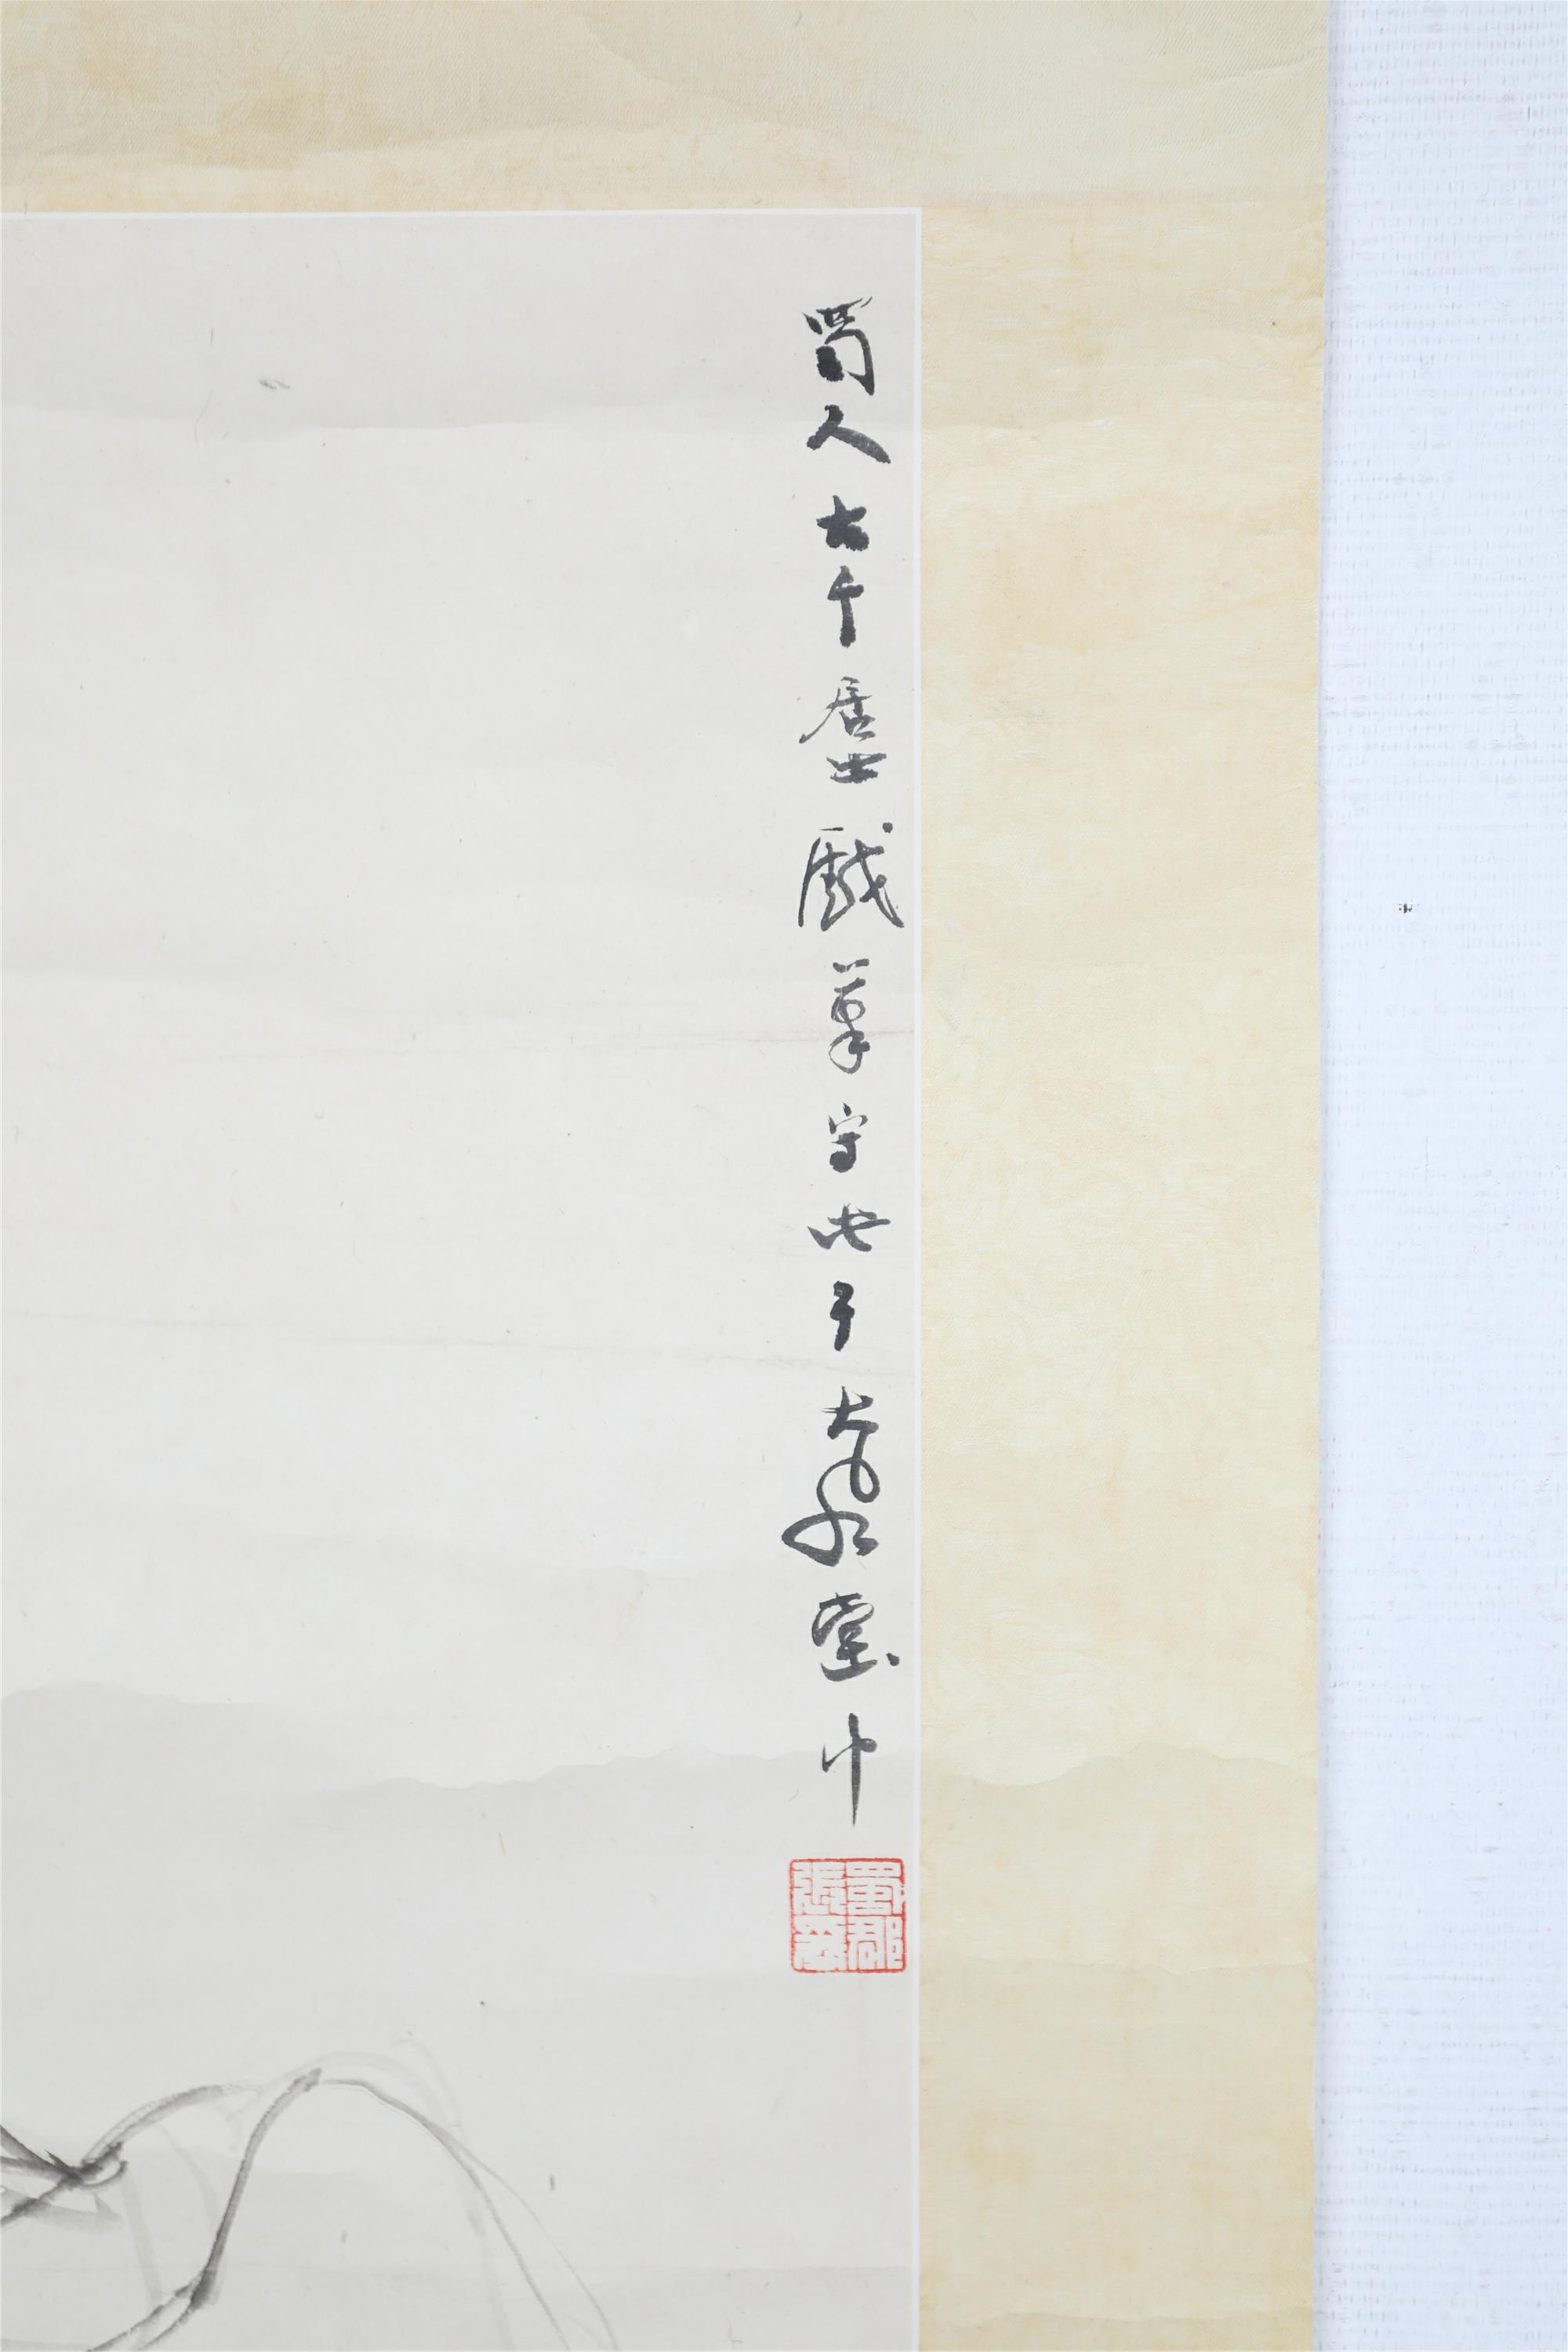 蜀人大千居士戲筆寫此于大風堂中
蜀郡
張爰